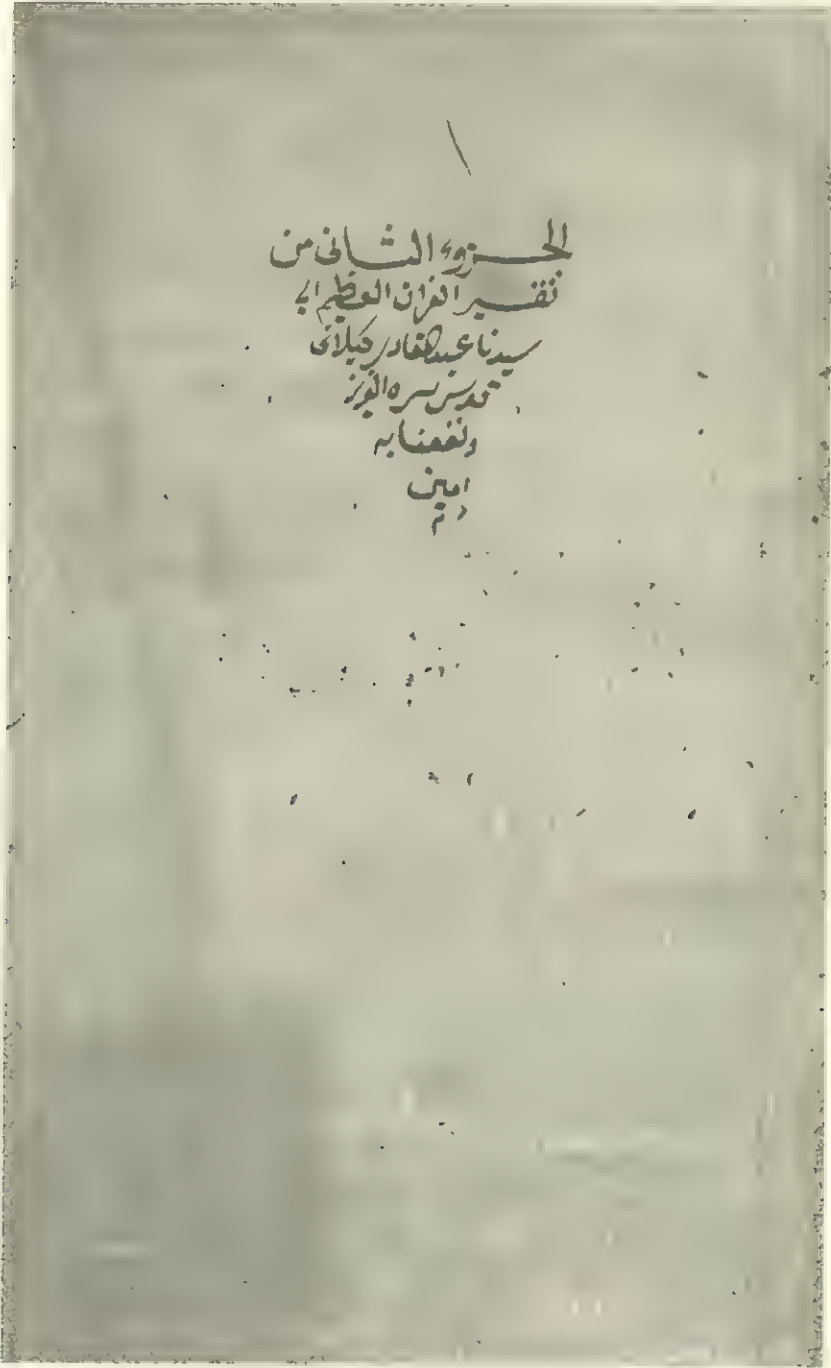 ١
الجزوء الثانى من
تفسير القران العظيم الى
سيدنا عبد القادر كيلانى
قدس سره العزيز
ونفعنا به
امين
م